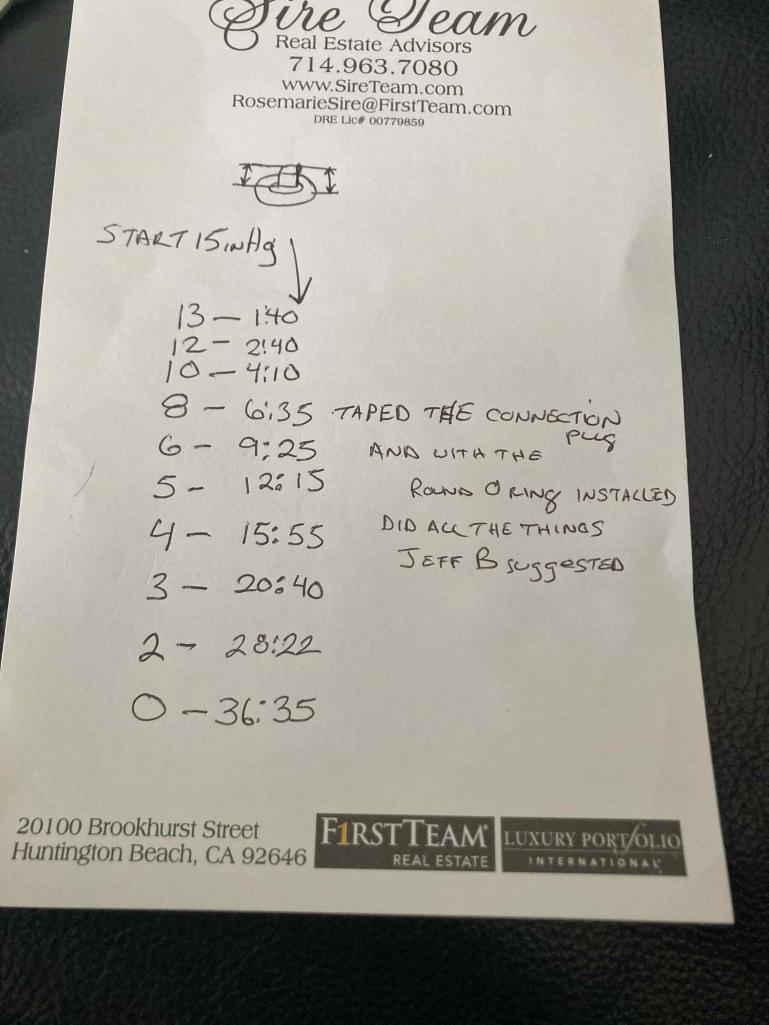 Sire Team
Real Estate Advisors
714.963.7080
www.SireTeam.com
RosemarieSire@FirstTeam.com
DRE Lic# 00779859
START 15 inHg
13 - 1:40
12 - 2:40
10 - 4:10
8 - 6:35 TAPED THE CONNECTION PLUG
6 - 9:25 AND WITH THE
5 - 12:15 ROUND O RING INSTALLED
4 - 15:55 DID ALL THE THINGS
JEFF B SUGGESTED
3 - 20:40
2 - 28:22
0 - 36:35
20100 Brookhurst Street
Huntington Beach, CA 92646
F1RST TEAM®
REAL ESTATE
LUXURY PORTfOLIO
INTERNATIONAL